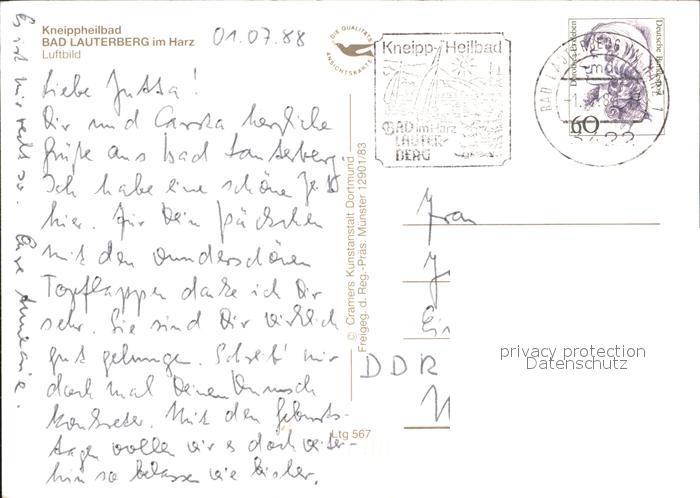 Kneippheilbad
BAD LAUTERBERG im Harz
Luftbild
01.07.88
DIE QUALITÄTS
ANSICHTSKARTE
Kneipp-Heilbad
BAD im Harz
LAUTER-
BERG
Deutsche Bundespost
60
Liebe Jutta!
Dir und Carska herzliche
Grüße aus Bad Lauterberg.
Ich habe eine schöne Zeit
hier. Für Dein Päckchen
mit den wunderschönen
Topflappen danke ich Dir
sehr. Sie sind Dir wirklich
gut gelungen. Schreib' mir
doch mal Deinen Wunsch
konkreter. Mit den Geburts-
tagen wollen wir es doch weiter-
hin so belassen wie bisher.
Es ist mir recht so. Eure Annemarie.
© Cramers Kunstanstalt Dortmund
Freigeg. d. Reg.-Präs. Münster 12901/83
Ltg 567
Frau
DDR
privacy protection
Datenschutz